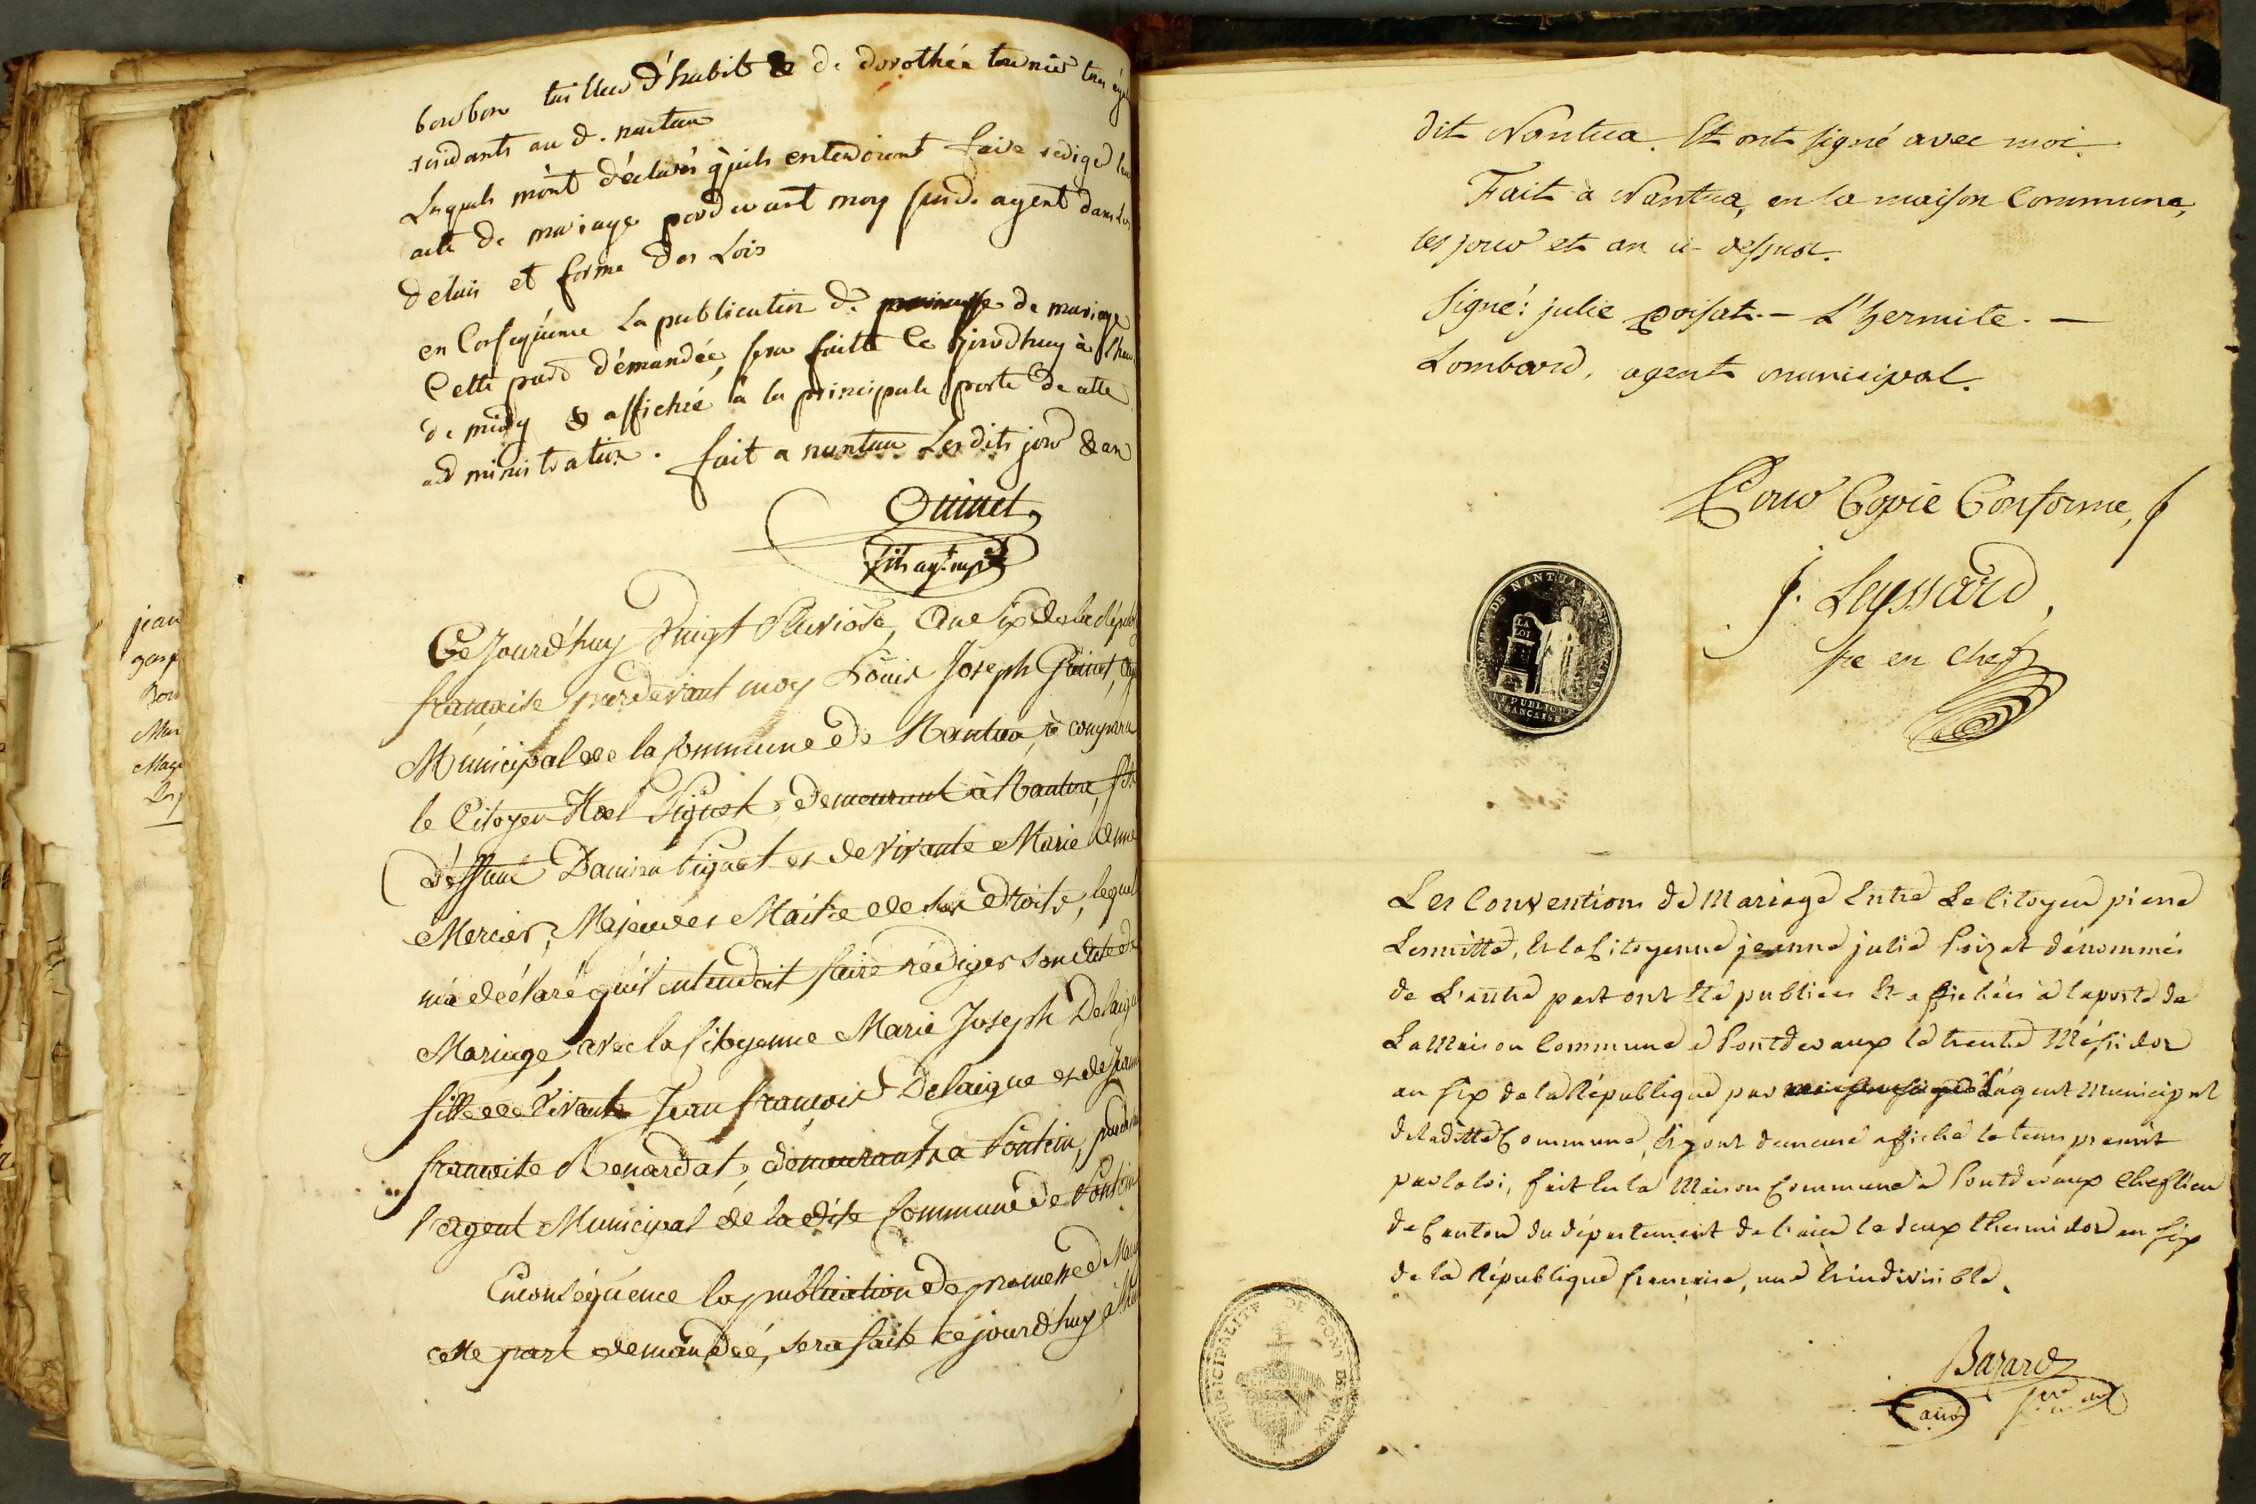 bourbon tailleur d'habit & de dorothée tournier tous
residants au d. nantua
Lesquels m'ont déclarés qu'ils entendoient faire rediger leur
acte de mariage pardevant moy susd. agent dans les
délais et forme des Lois
en Conséquence La publication de promesse de mariage
Cette part démandée, sera faitte Ce jourdhuy à l'heure
de midy & affichée à la principale porte de cette
administration. fait a nantua Lesdits jour & an
Quinet
fils agt. mpal
Ce Jourd'huy Vingt Pluviose, an Six de la Répub
francaise pardevant moy Louis Joseph Quinet, Ag
Municipal de la Commune de Nantua, à comparu
le Citoyen Piquet, demeurant à Nantua, fils
déffunt Damien Piquet et de vivante Marie Anne
Mercier, Majeur et Maitre de ses droits, lequel
m'a déclaré qu'il entendoit faire rédiger son Acte de
Mariage avec la Citoyenne Marie Joseph Delaigue
fille de vivants Jean françois Delaigue et de Jeanne
francoise Renardat, demeurant a Pontcin, pardevant
l'agent Municipal de la dite Commune de Pontcin
En conséquence la publication de promesse de Mari
cette part demandée, sera faite ce jourd'huy
jean
gasp
Mar
dit Nantua. Et ont signé avec moi.
Fait à Nantua, en la maison Commune,
les jour et an ci-dessus.
Signé: julie poisat. - L'hermite. -
Lombard, agent municipal.
Pour Copie Conforme,
J. Leyssard,
sre en chef
DE NANTUA
LA
LOI
RÉPUBLIQUE
FRANCAISE
Les Conventions de Mariage Entre Le Citoyen pierre
Lermitte, Et la Citoyenne jeanne julie Poizat dénommés
de L'autre part ont Eté publiées Et affichées à la porte de
La Maison Commune d Pontdevaux le trente Méssidor
an six de la République par moi soussigné L'agent Municipal
de laditte Commune, Et y ont demeuré affiché le tems prescrit
par la loi, fait En la Maison Commune d Pontdevaux Cheflieu
de Canton du département de l'ain le deux thermidor an six
de la République française, une & indivisible.
Bazard
MUNICIPALITE DE PONT DE VAUX